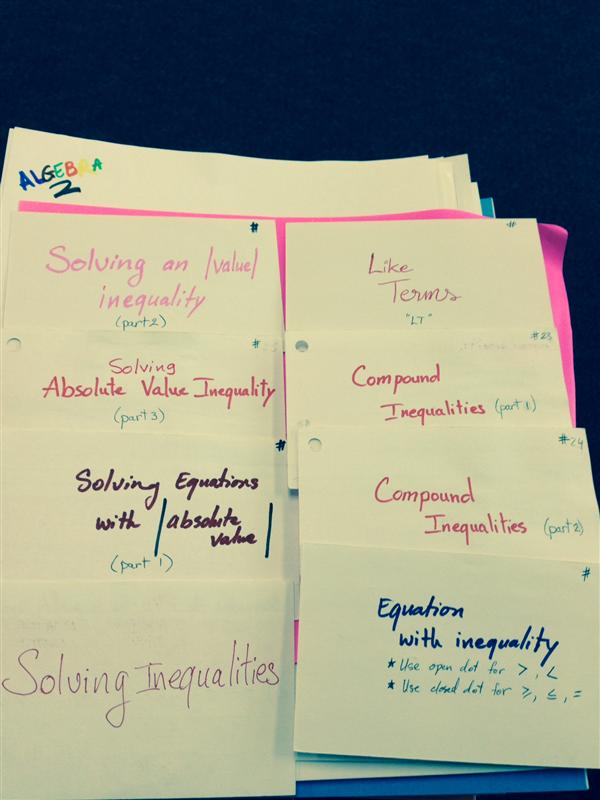 ALGEBRA
2
#
Solving an |value|
inequality
(part 2)
#
Solving
Absolute Value Inequality
(part 3)
#
Solving Equations
with |absolute
value|
(part 1)
Solving Inequalities
#
Like
Terms
"LT"
#23
Compound
Inequalities (part 1)
#24
Compound
Inequalities (part 2)
#
Equation
with inequality
★ Use open dot for >, <
★ Use closed dot for ≥, ≤, =